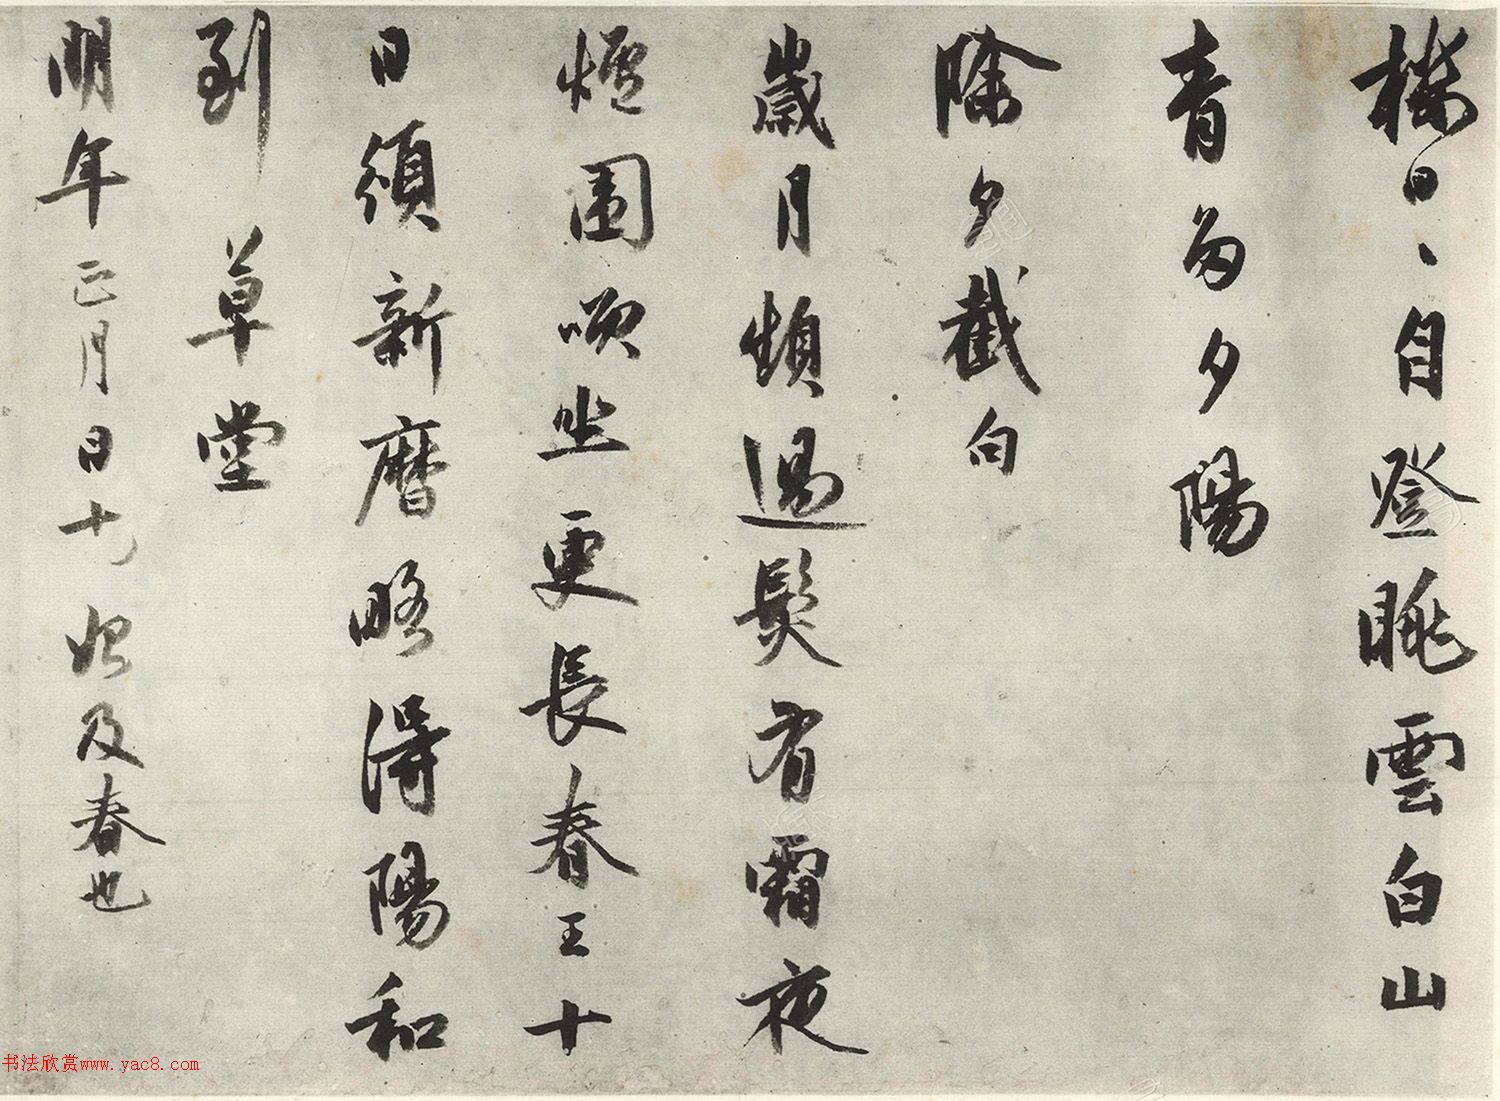 樓日、自登眺雲白山
青多夕陽
除夕截句
歲月頻過鬢有霜夜
爐圍坐更長春王十
日頒新曆略得陽和
到草堂
明年正月日十始及春也
书法欣赏www.yac8.com